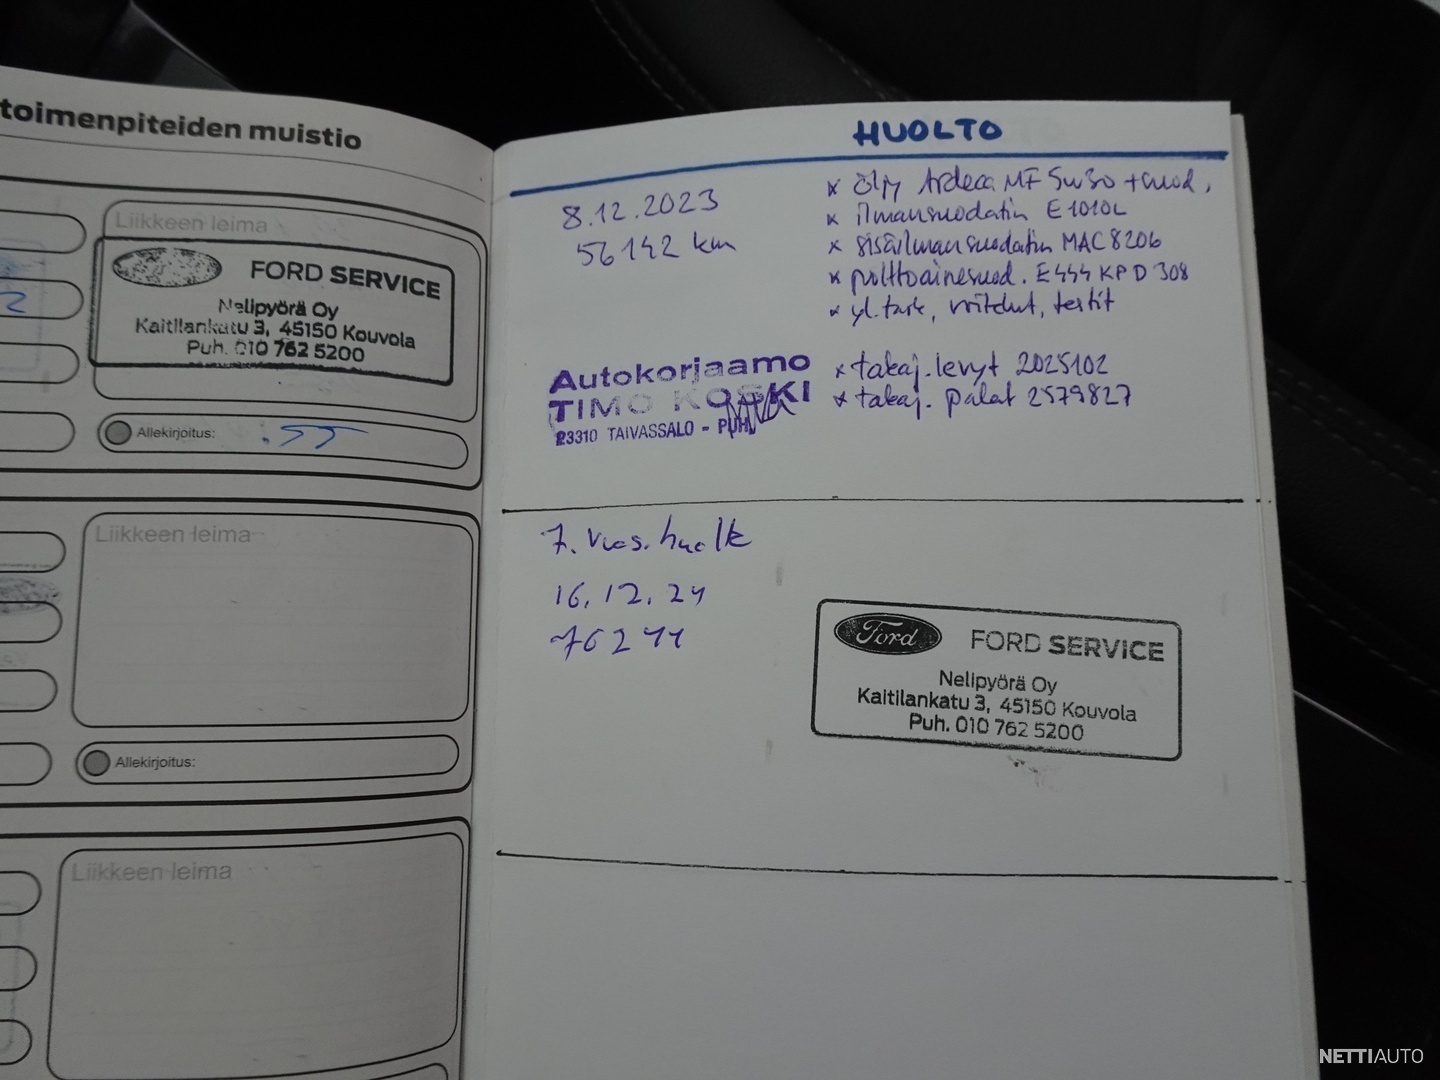 toimenpiteiden muistio
Liikkeen leima
FORD SERVICE
Nelipyörä Oy
Kaitilankatu 3, 45150 Kouvola
Puh. 010 762 5200
2
Allekirjoitus:
Liikkeen leima
Allekirjoitus:
Liikkeen leima
HUOLTO
8.12.2023
56142 km
x öljy Ardeca MF 5w30 + suod.
x ilmansuodatin E1010L
x sisäilmansuodatin MAC8206
x polttoainesuod. E444 KP D 308
x yl.tark, voitelut, testit
Autokorjaamo
TIMO KOSKI
23310 TAIVASSALO - PUH.
x takaj.levyt 2025102
x takaj. palat 2579827
7. vuos.huolto
16.12.24
76244
Ford
FORD SERVICE
Nelipyörä Oy
Kaitilankatu 3, 45150 Kouvola
Puh. 010 762 5200
NETTIAUTO